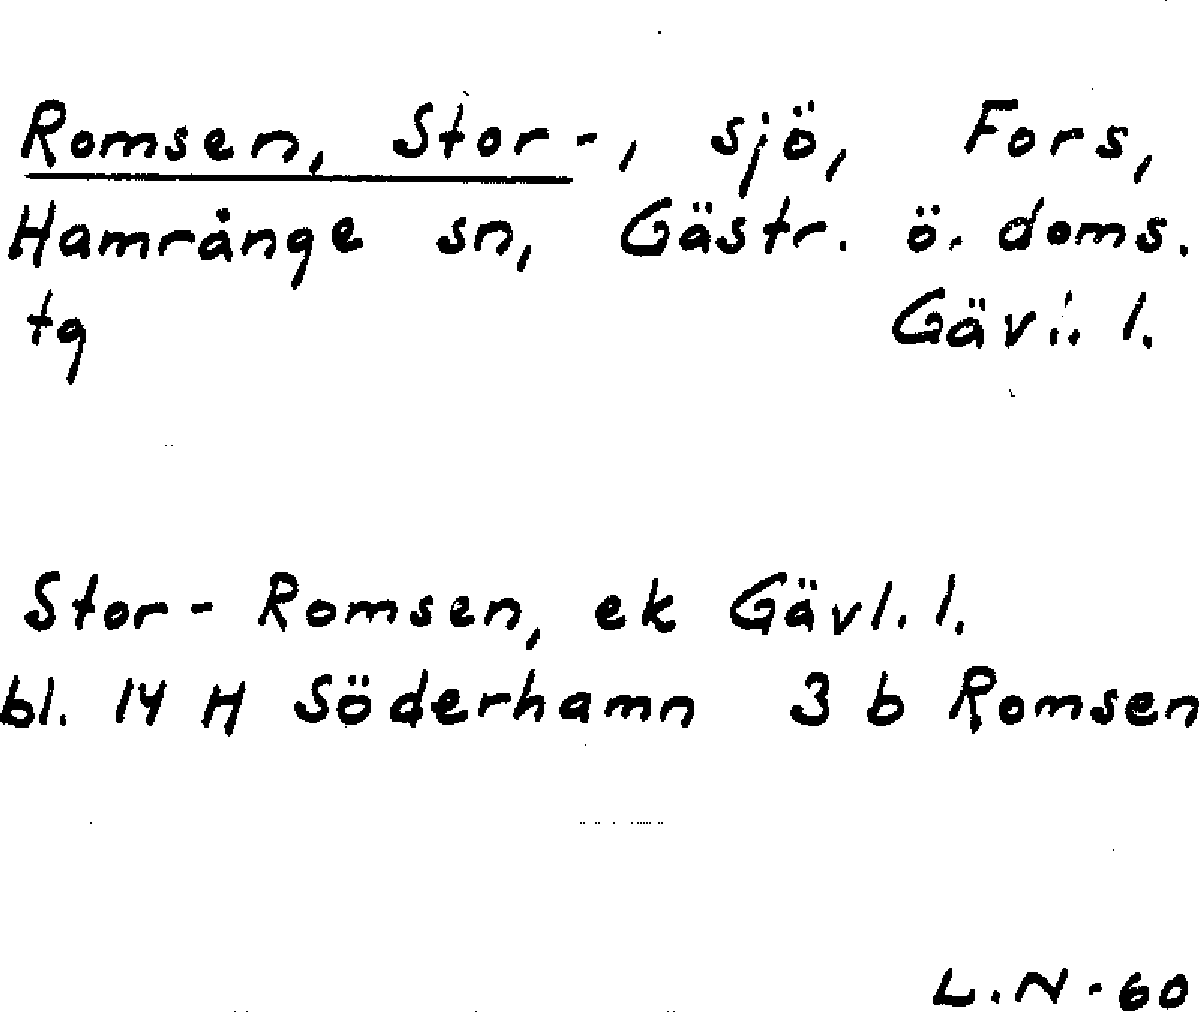 Romsen, Stor-, sjö, Fors,
Hamrånge sn, Gästr. ö. doms.
tg Gävl. l.
Stor-Romsen, ek Gävl. l.
bl. 14 H Söderhamn 3 b Romsen
L.N-60